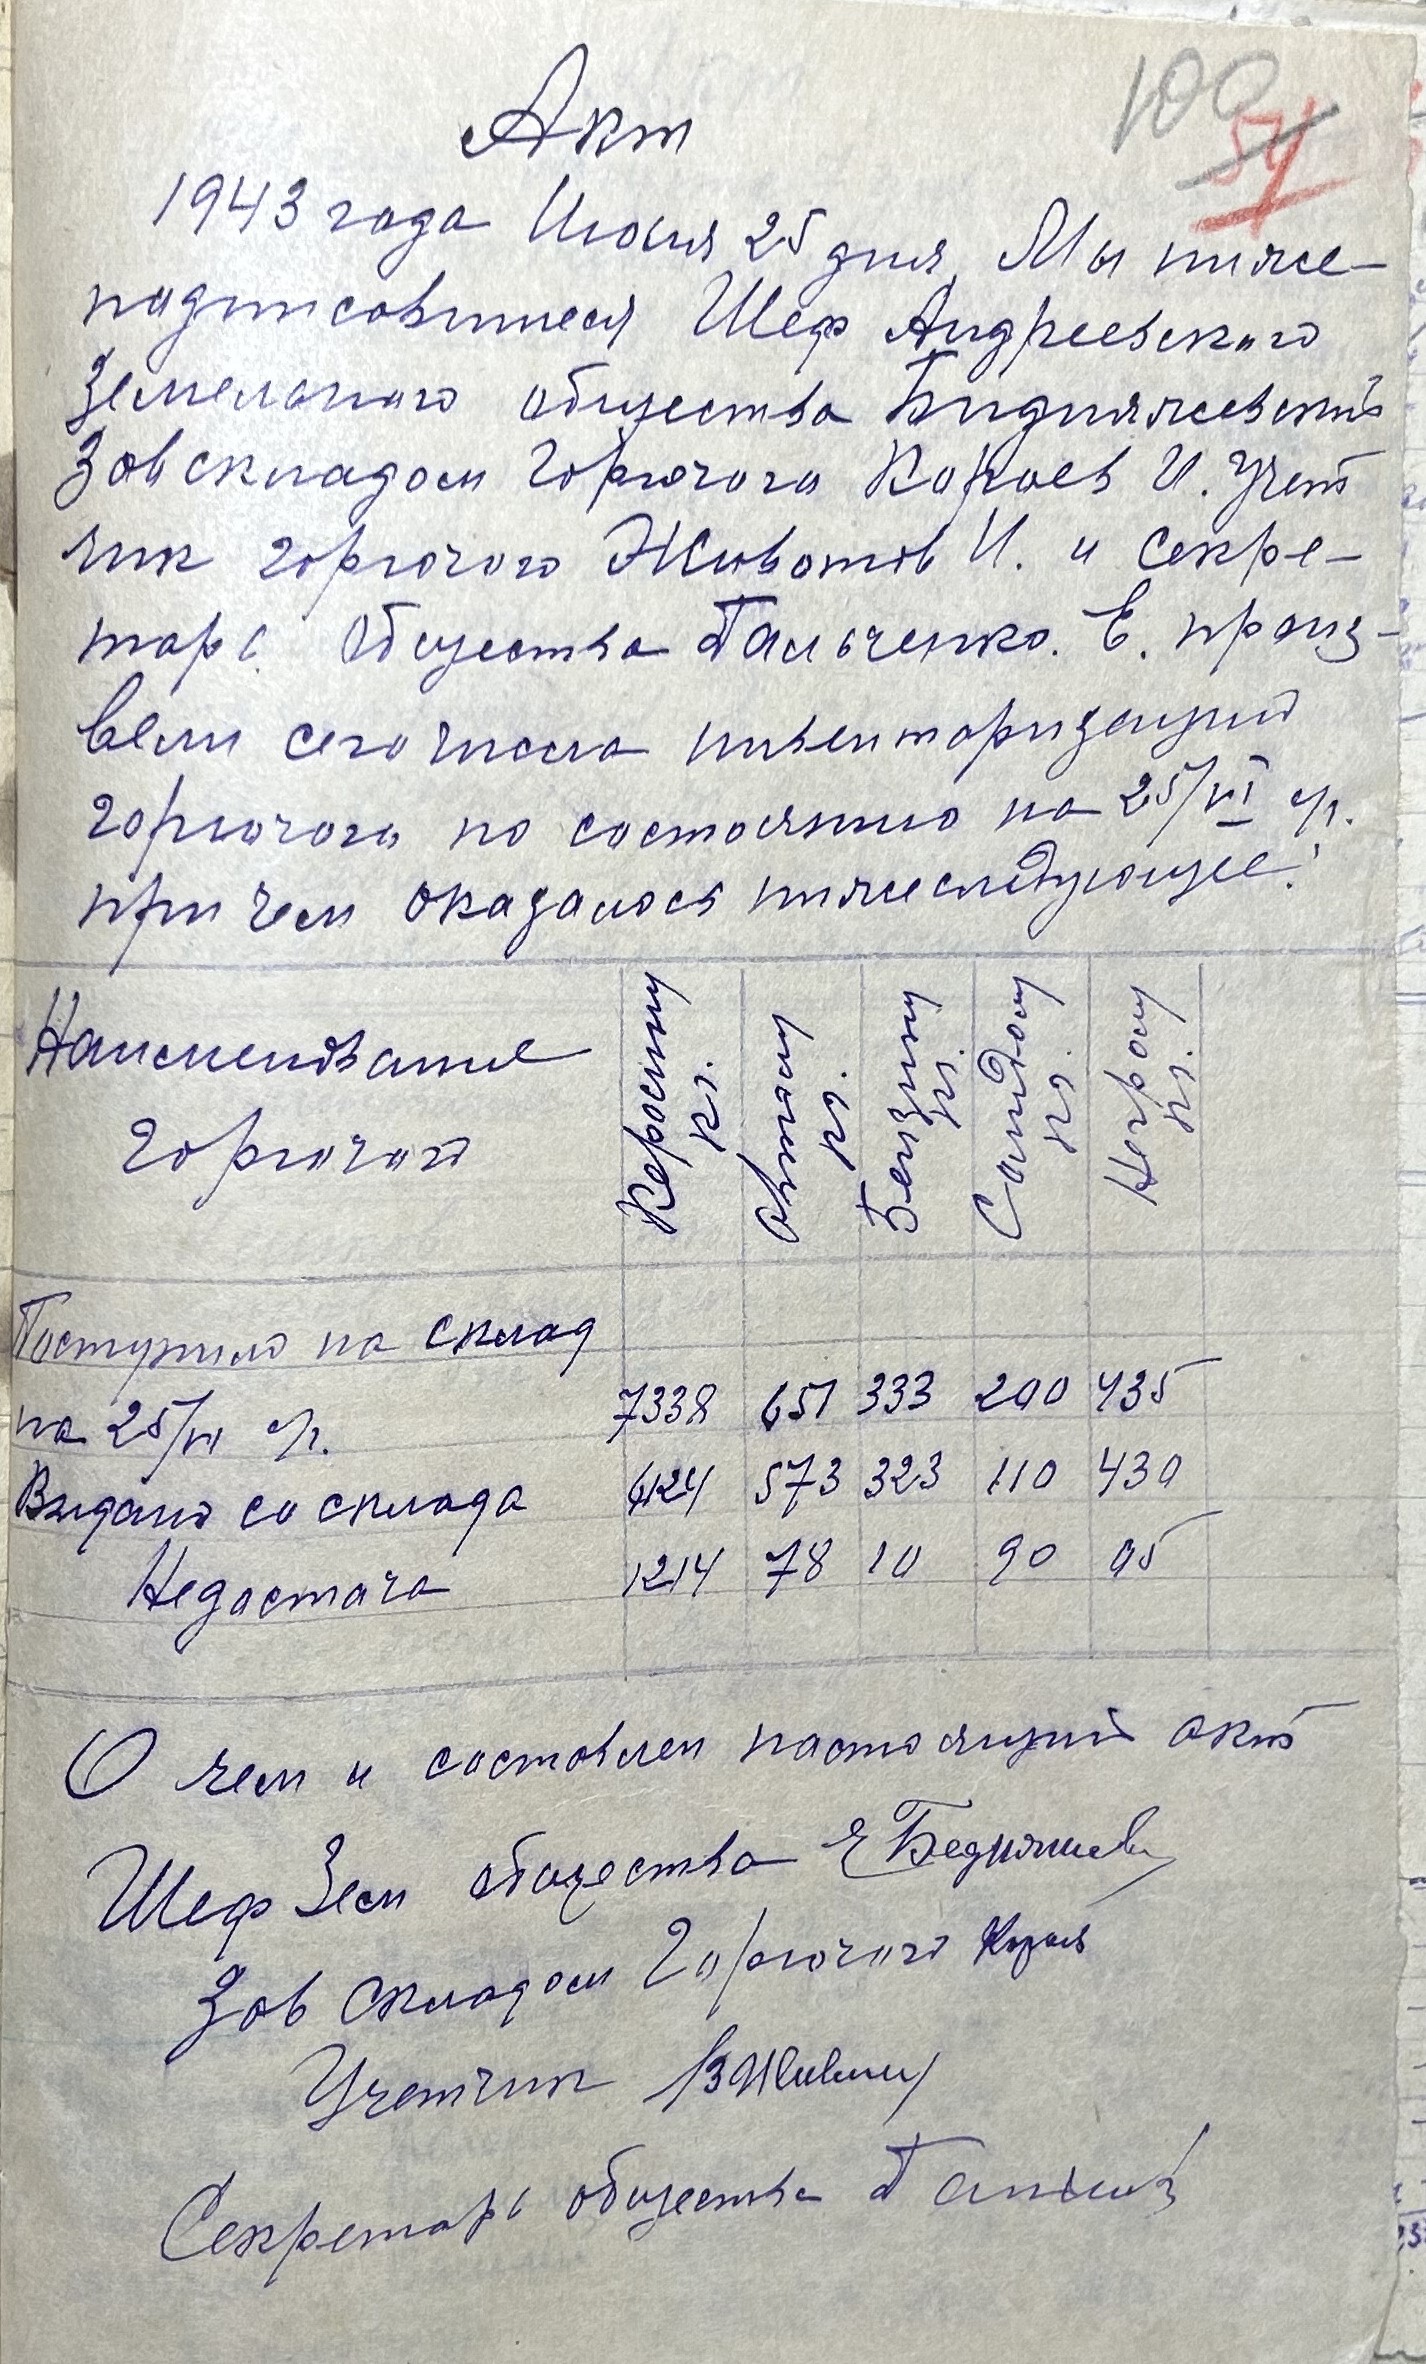 100
54
Акт
1943 года Июня 25 дня, Мы ниже-
подписовшиеся Шеф Андреевского
Земельного общества Бидняжевский
Зов складом Горючого Кораев И. Учет
чик горючого Животов И. и секре-
тарь общества Пальченко. Е. произ-
вели сего числа инвенторизаций
горючого по состоянию на 25/VI с/г.
при чем оказалось нижеследующее:
Наименование Горючого
Керосину кг.
Автолу кг.
Бензину кг.
Солидолу кг.
Негролу кг.
Поступило на склад
на 25/VI с/г. 7338 651 333 200 435
Выдано со склада 6124 573 323 110 430
Недостача 1214 78 10 90 05
О чем и составлен настоящий актъ
Шеф Зем общества
Зов складом Горючого
Учетчик
Секретарь общества